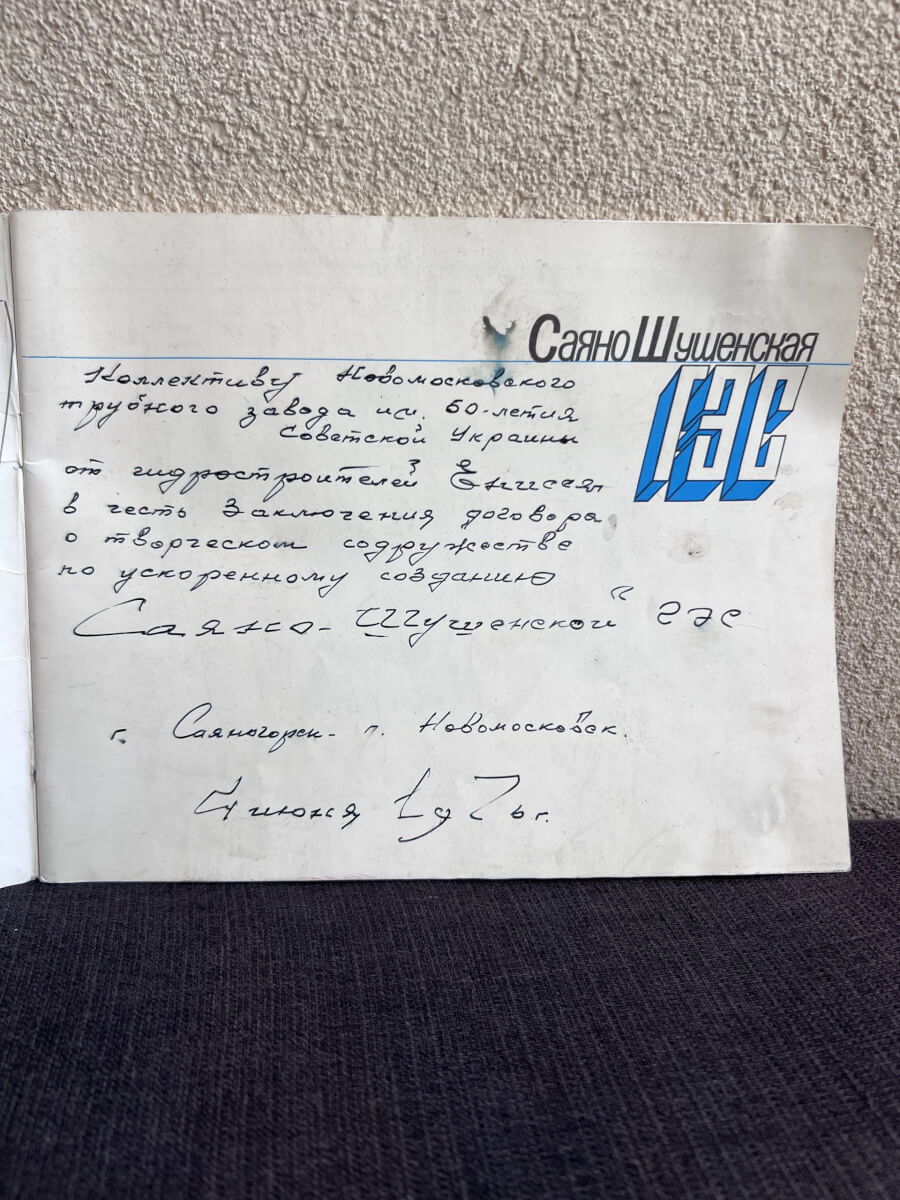 СаяноШушенская
ГЭС
Коллективу Новомосковского
трубного завода им. 50-летия
Советской Украины
от гидростроителей Енисея
в честь Заключения договора
о творческом содружестве
по ускоренному созданию
Саяно-Шушенской ГЭС
г. Саяногорск - г. Новомосковск.
4 июня 1976 г.